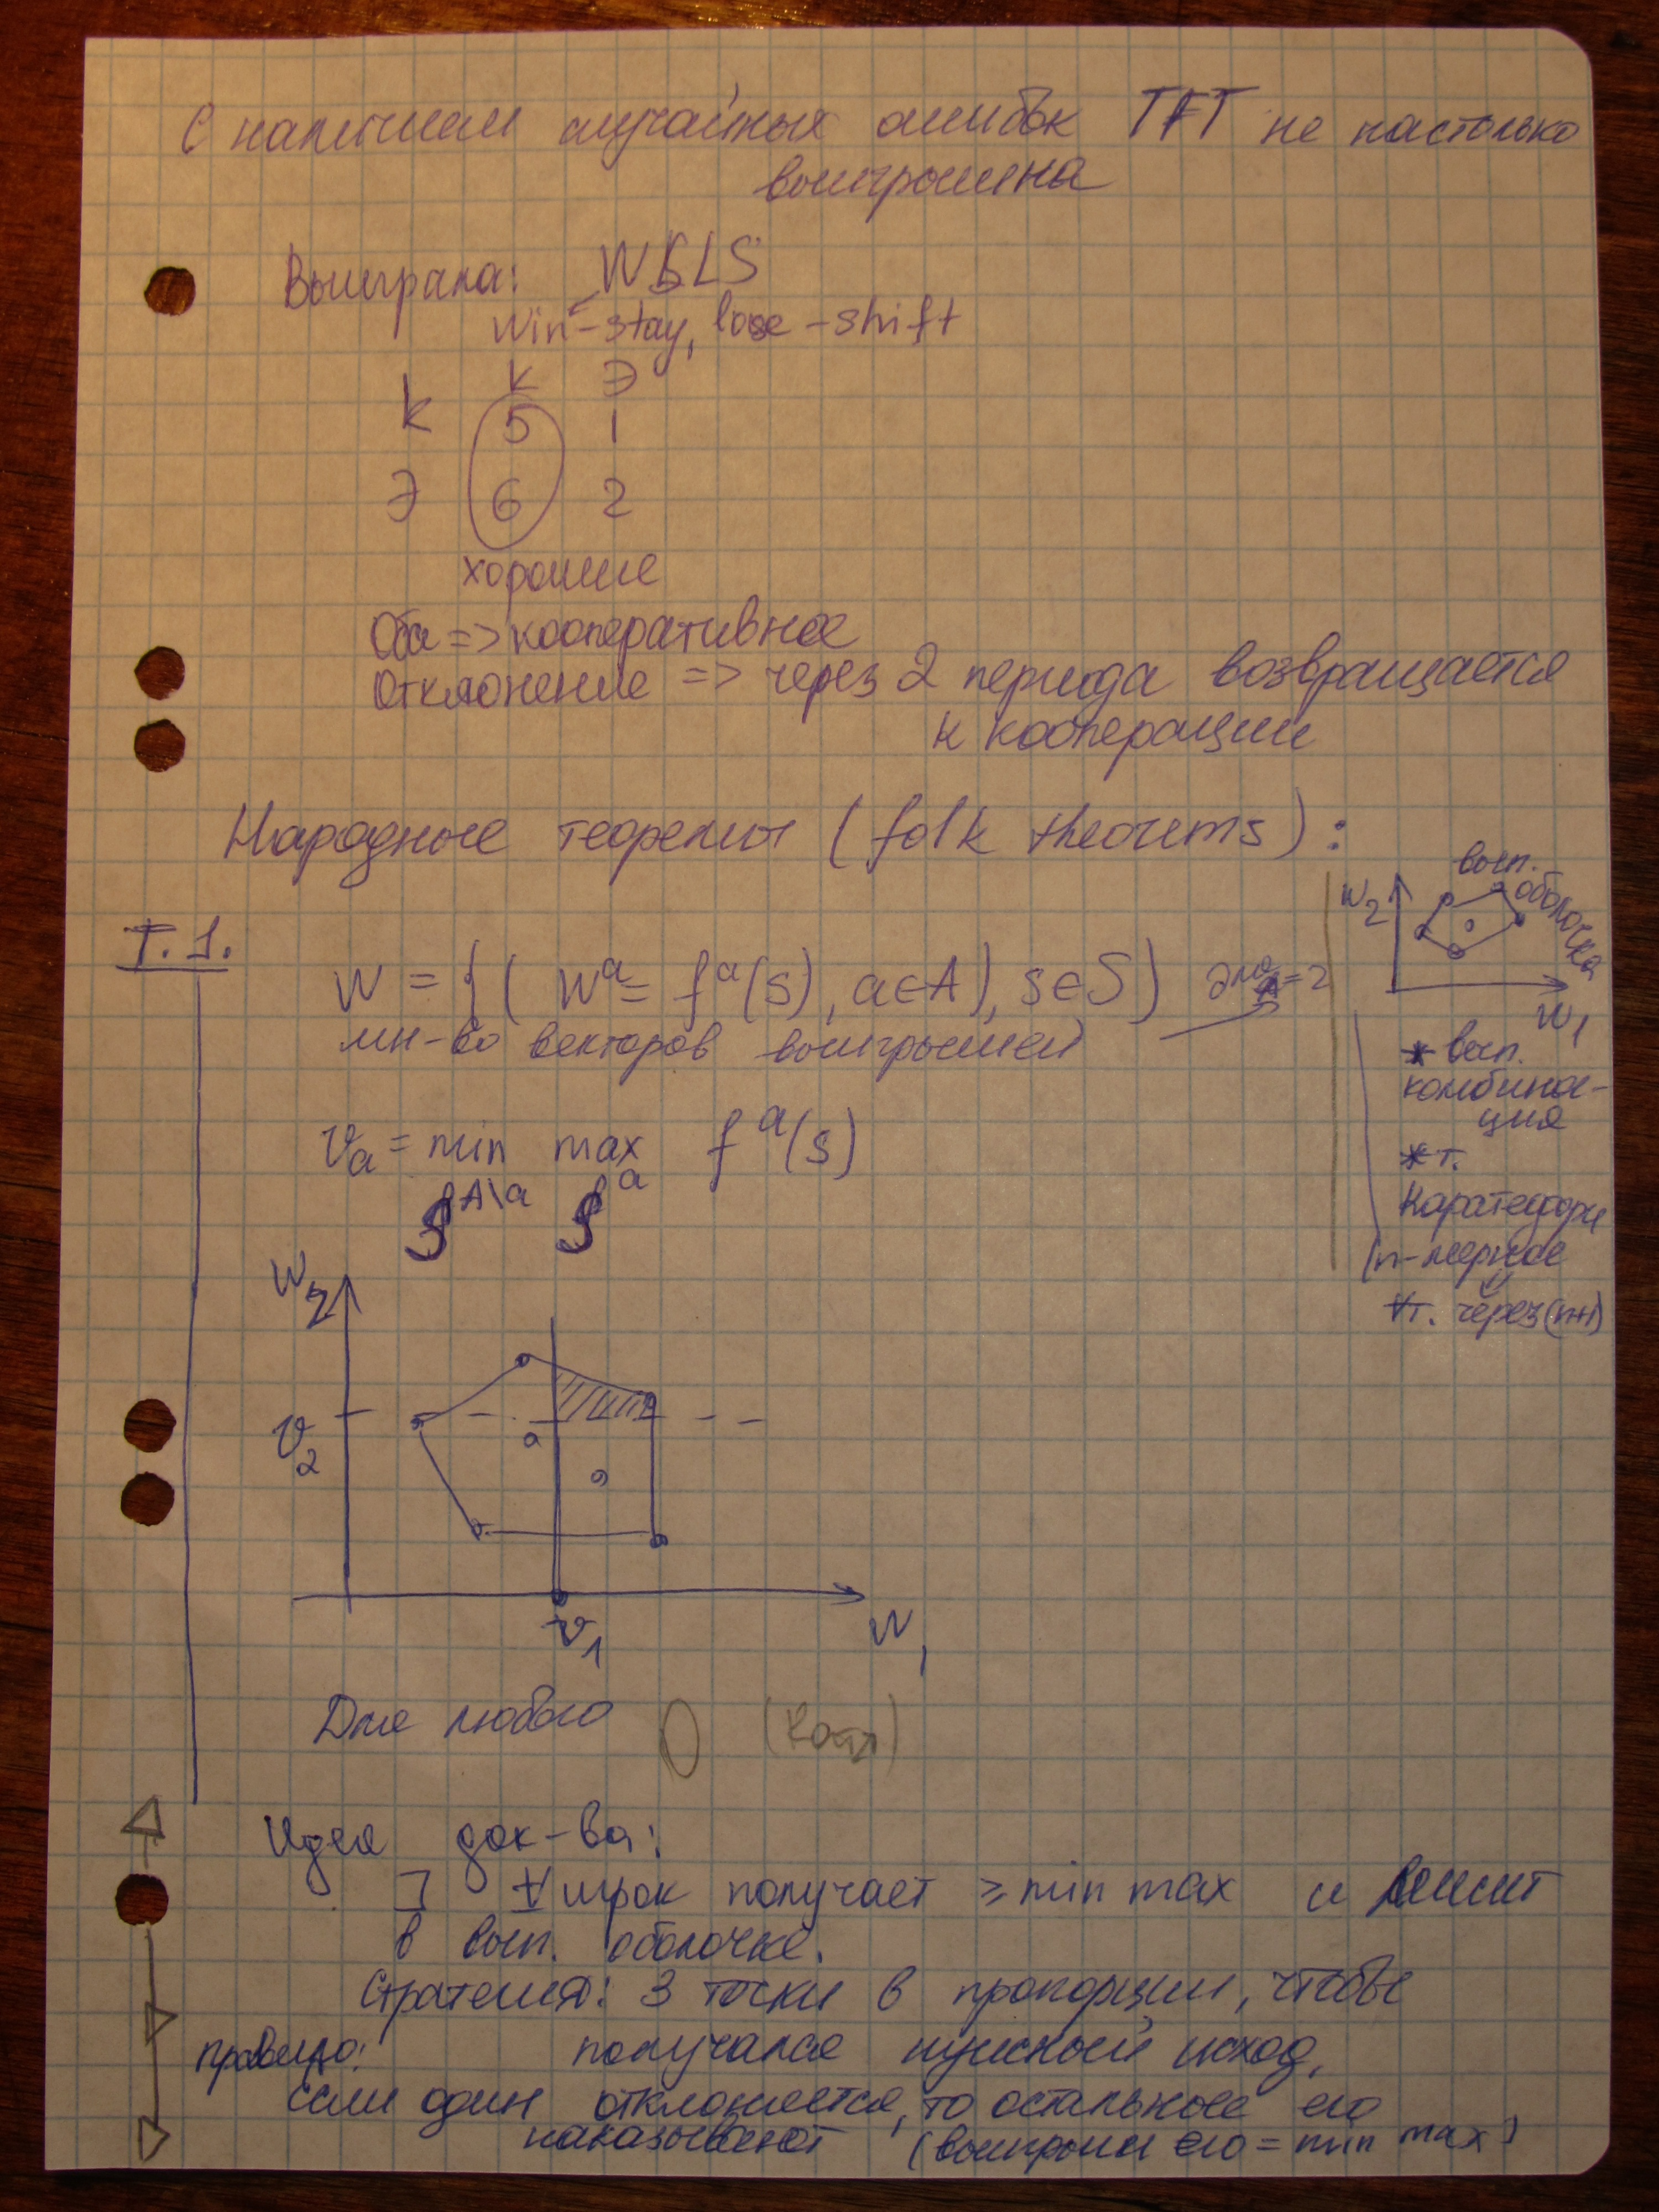 С наличием случайных ошибок TFT не настолько
выигрышна
Выиграла: WSLS
win-stay, lose-shift
К Э
К 5 1
Э 6 2
хорошие
Оба => кооперативное
Отклонение => через 2 периода возвращается
к кооперации
Народные теоремы (folk theorems):
вып.
оболочка
W2
W1
Т. 1.
W = {( wᵃ = fᵃ(s), a∈A), s∈S} для A=2
мн-во векторов выигрышей
* вып.
комбина-
ция
* т.
Каратеодори
(n-мерное
∀т. через (n+1)
va = min max fᵃ(s)
S^A\a S^a
W2
v2
v1
W1
Для любого
Идея док-ва:
] ∀ игрок получает ≥ min max и лежит
в вып. оболочке.
Стратегия: 3 точки в пропорции, чтобы
правило: получался нужный исход,
если один отклоняется, то остальные его
наказывают (выигрыш его = min max)